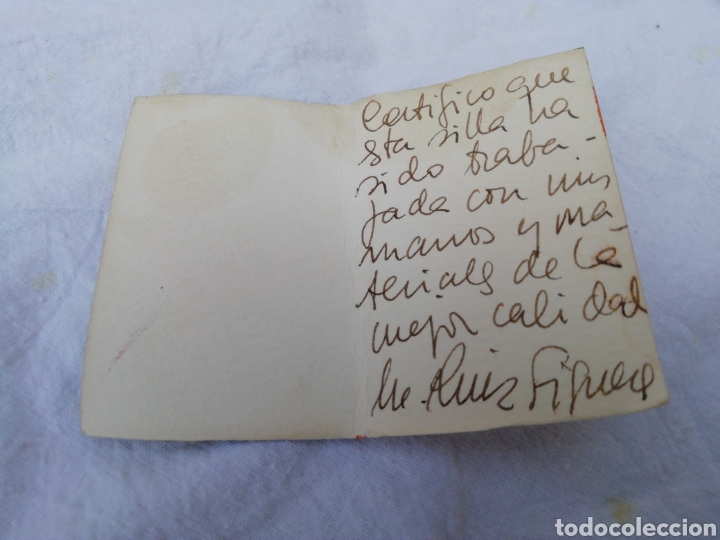 Certifico que
esta silla ha
sido traba-
jada con mis
manos y ma-
teriales de la
mejor calidad
M. Ruiz
todocoleccion